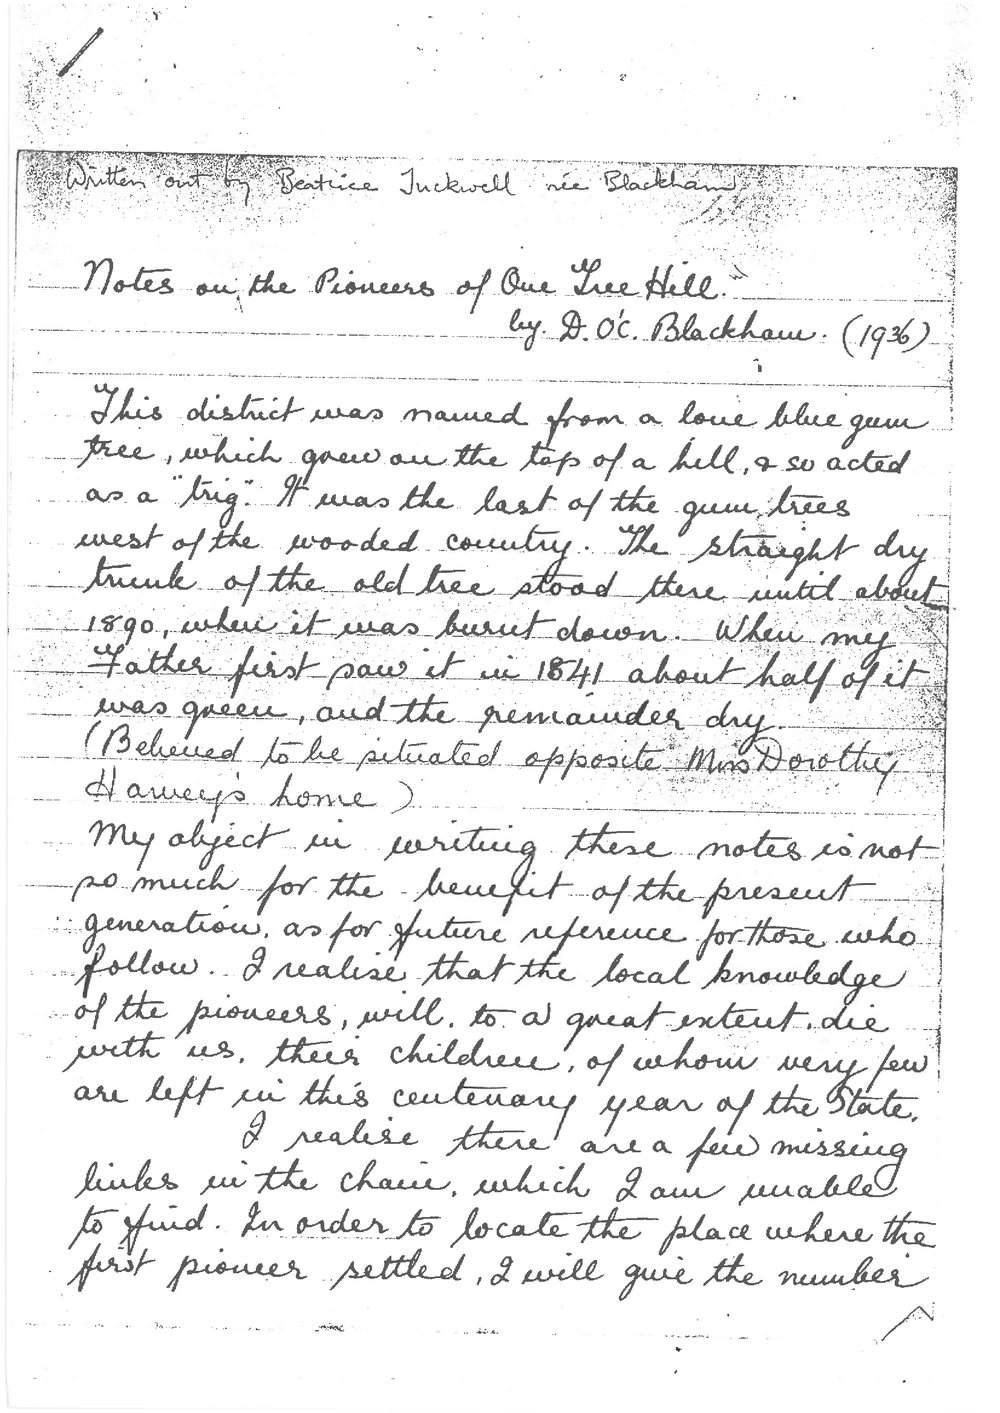 Written out by Beatrice Tuckwell née Blackham
Notes on the Pioneers of One Tree Hill.
by. D. O'C. Blackham. (1936)
This district was named from a lone blue gum
tree, which grew on the top of a hill, & so acted
as a "trig". It was the last of the gum trees
west of the wooded country. The straight dry
trunk of the old tree stood there until about
1890, when it was burnt down. When my
Father first saw it in 1841 about half of it
was green, and the remainder dry.
(Believed to be situated opposite Miss Dorothy
Harvey's home)
My object in writing these notes is not
so much for the benefit of the present
generation, as for future reference for those who
follow. I realise that the local knowledge
of the pioneers, will, to a great extent, die
with us, their children, of whom very few
are left in this centenary year of the State.
I realise there are a few missing
links in the chain, which I am unable
to find. In order to locate the place where the
first pioneer settled, I will give the number